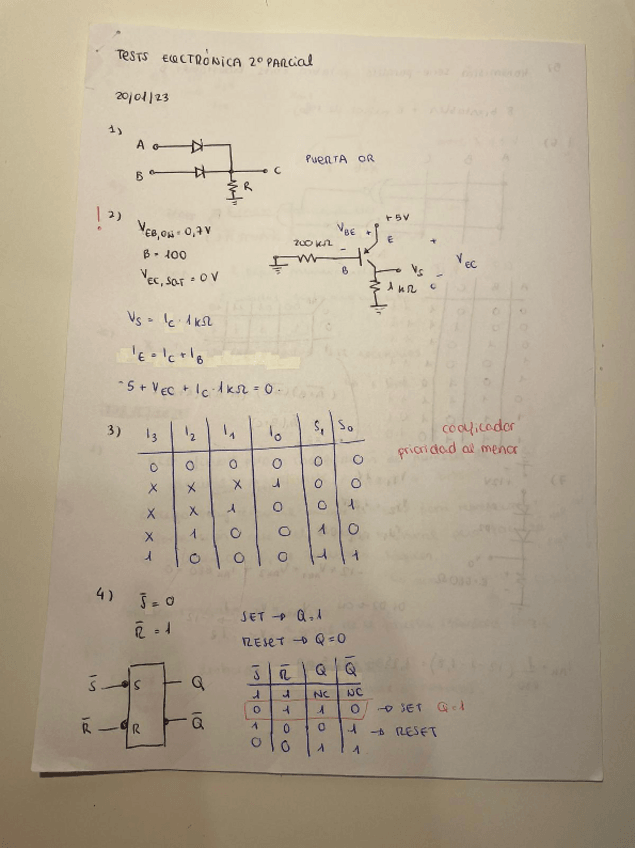 TESTS ELECTRÓNICA 2º PARCIAL
20/01/23
1)
A
B
C
R
PUERTA OR
! 2)
V_EB,ON = 0,7V
B = 100
V_EC,SAT = 0V
200KΩ
V_BE + -
B
E
+5V
+
V_EC
-
V_S
1KΩ
V_S = I_C · 1KΩ
I_E = I_C + I_B
-5 + V_EC + I_C · 1KΩ = 0.
3)
I_3 I_2 I_1 I_0 S_1 S_0
0 0 0 0 0 0
X X X 1 0 0
X X 1 0 0 1
X 1 0 0 1 0
1 0 0 0 1 1
codificador
prioridad al menor
4)
S̄ = 0
R̄ = 1
SET → Q=1
RESET → Q=0
S̄ S Q
R̄ R Q̄
S̄ R̄ Q Q̄
1 1 NC NC
0 1 1 0 → SET Q=1
1 0 0 1 → RESET
0 0 1 1